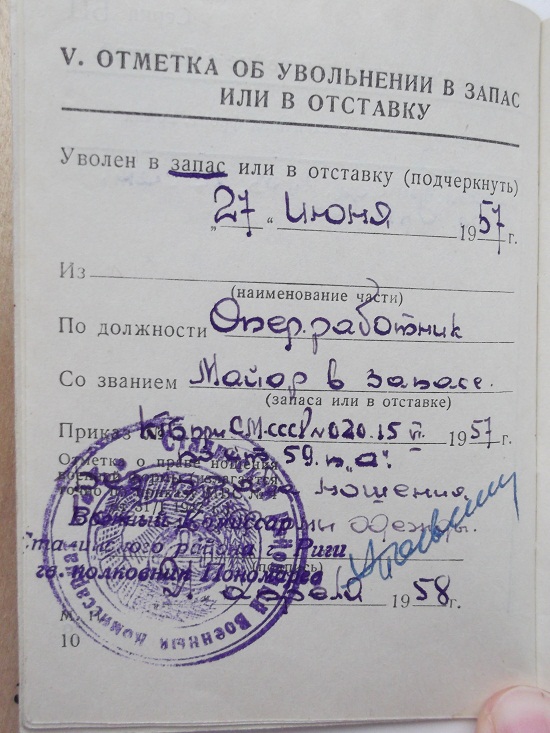 V. ОТМЕТКА ОБ УВОЛЬНЕНИИ В ЗАПАС
ИЛИ В ОТСТАВКУ
Уволен в запас или в отставку (подчеркнуть)
„27“ июня 1957 г.
Из
(наименование части)
По должности Опер. работник
Со званием Майор в запасе.
(запаса или в отставке)
Приказ КГБ при СМ СССР № 020. 15 VI. 1957 г.
ст. 59. п „а".
Отметка о праве ношения
военной
ношения
Военный Комиссар одежды.
Сталинского района г. Риги
гв. полковник Пономарев
(подпись)
апреля 1958 г.
М.
10